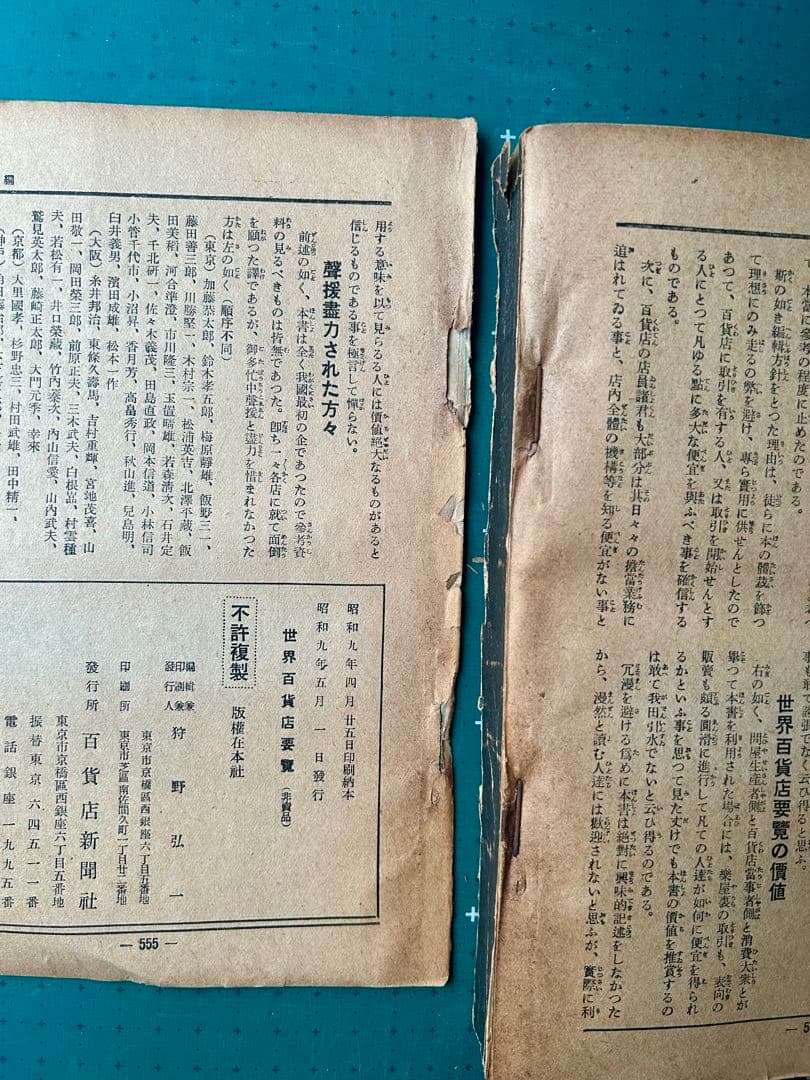 考の程度に止めたのである。
斯の如き編輯方針をとつた理由は、徒らに本の體裁を飾つ
て理想にのみ走るの弊を避け、專ら實用に供せんとしたので
あつて、百貨店に取引を有する人、又は取引を開始せんとす
る人にとつて凡ゆる點に多大な便宜を與ふべき事を確信する
ものである。
次に、百貨店の店員諸君も大部分は其日々々の擔當業務に
追はれてゐる事と、店內全體の機構等を知る便宜がない事と
誇張でなく云ひ得ると思ふ。
世界百貨店要覽の價値
右の如く、問屋生產者側と百貨店當事者側と消費大衆とが
擧つて本書を利用された場合には、樂屋裏の取引も、表向の
販賣も頗る圓滑に進行して凡ての人達が如何に便宜を得られ
るかといふ事を思つて見た丈けでも本書の價値を推賞するの
は敢て我田引水でないと云ひ得るのである。
冗漫を避ける爲めに本書は絕對に興味的記述をしなかつた
から、漫然と讀む人達には歡迎されないと思ふが、實際に利
用する意味を以て見らるる人には價値絕大なるものがあると
信じるものである事を極言して憚らない。
聲援盡力された方々
前述の如く、本書は全く我國最初の企であつたので參考資
料の見るべきものは皆無であつた。卽ち一々各店に就て面倒
を願つた譯であるが、御多忙中聲援と盡力を惜まれなかつた
方は左の如く(順序不同)
(東京)加藤恭太郞、鈴木孝五郞、梅原靜雄、飯野三一、
藤田善三郞、川勝堅一、木村宗一、松浦英吉、北澤平藏、飯
田美稻、河合準澄、市川隆三、玉置晴雄、若森淸次、石井定
夫、千北硏一、佐々木義茂、田島直政、岡本信道、小林信司
小菅千代市、小沼昇、香月芳、高畠秀行、秋山進、兒島明、
臼井義男、濱田成雄、松本一作
(大阪)糸井邦治、東條久壽馬、吉村重輝、宮地茂喜、山
田敬一、岡田榮三郞、前原正夫、三木武夫、白根嵓、村雲種
夫、若松有一、井口榮藏、竹內秦次、內山信愛、山內武夫、
鷲見英太郞、藤崎正太郞、大門元季、幸來
(京都)大里國孝、杉野忠三、村田武雄、田中精一、
昭和九年四月廿五日印刷納本
昭和九年五月一日發行
世界百貨店要覽(非賣品)
不許複製
版權在本社
編輯兼
印刷兼
發行人
狩野弘一
東京市京橋區西銀座六丁目五番地
印刷所
東京市芝區南佐間久町一丁目廿三番地
發行所
百貨店新聞社
東京市京橋區西銀座六丁目五番地
振替東京六四五一一番
電話銀座一九九五番
— 555 —
編